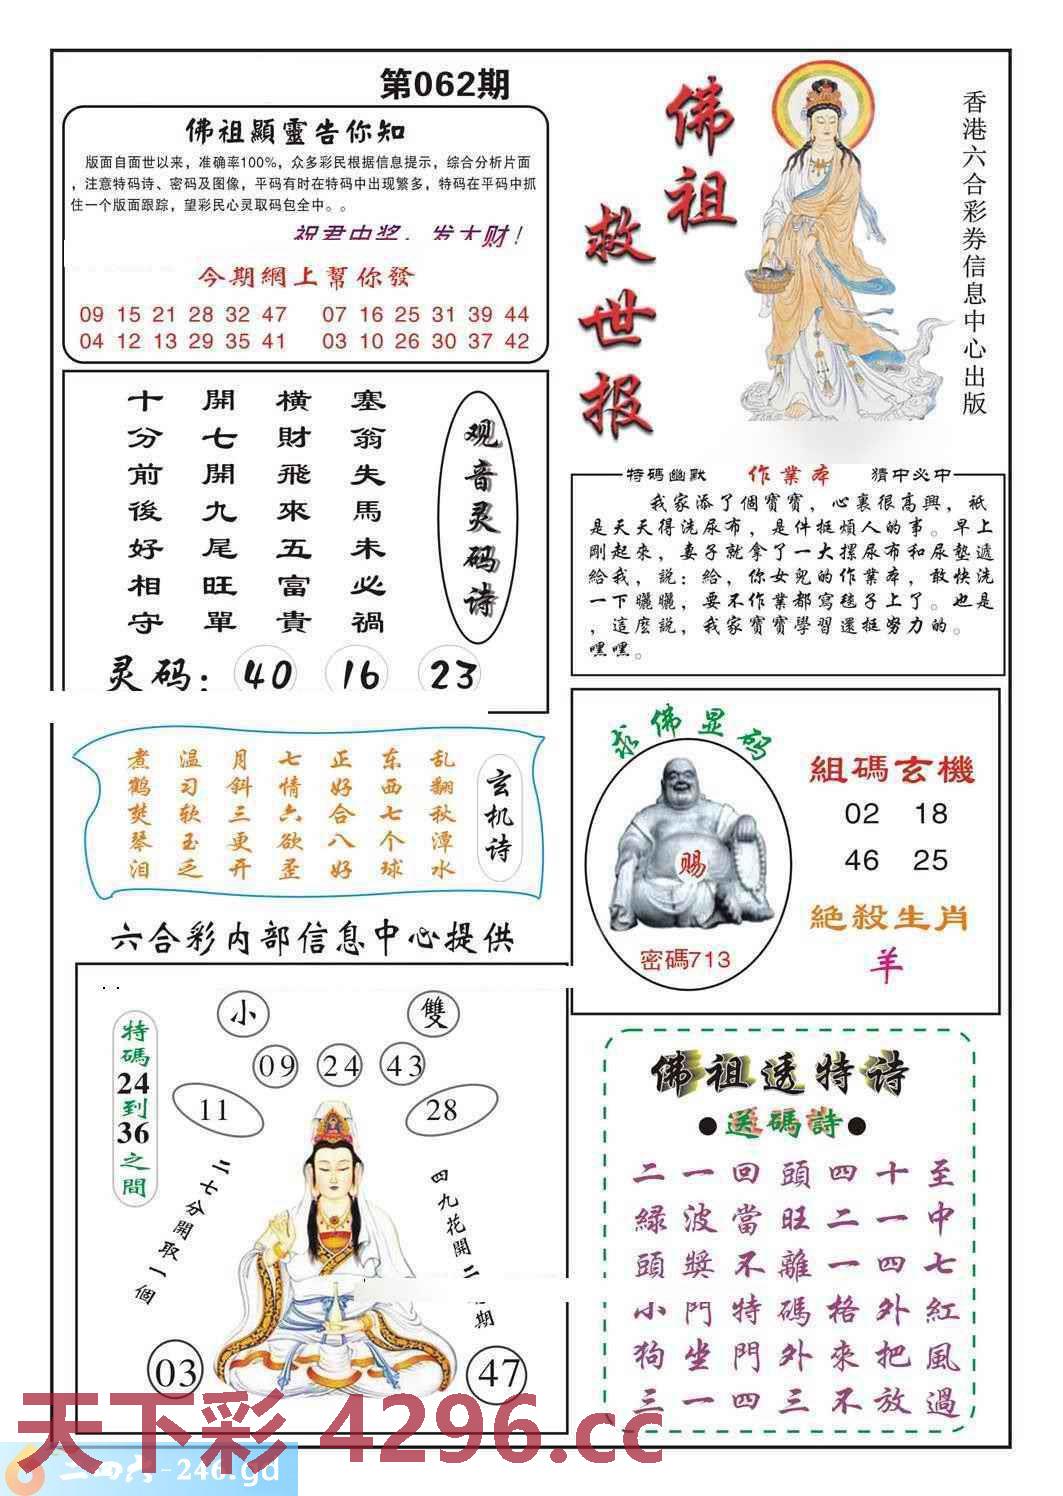 第062期
佛祖顯靈告你知
版面自面世以来，准确率100%，众多彩民根据信息提示，综合分析片面
，注意特码诗、密码及图像，平码有时在特码中出现繁多，特码在平码中抓
住一个版面跟踪，望彩民心灵取码包全中。。
祝君中奖，发大财！
今期網上幫你發
09 15 21 28 32 47 07 16 25 31 39 44
04 12 13 29 35 41 03 10 26 30 37 42
佛祖
救世报
香港六合彩券信息中心出版
观音灵码诗
塞翁失馬未必禍
橫財飛來五富貴
開七開九尾旺單
十分前後好相守
灵码：40 16 23
特碼幽默 作業本 猜中必中
我家添了個寶寶，心裏很高興，祇
是天天得洗尿布，是件挺煩人的事。早上
剛起來，妻子就拿了一大摞尿布和尿墊遞
給我，説：給，你女兒的作業本，敢快洗
一下曬曬，要不作業都寫毯子上了。也是
，這麼説，我家寶寶學習還挺努力的。
嘿嘿。
玄机诗
乱翻秋潭水
东西七个球
正好合八好
七情六欲歪
月斜三更开
温习软玉乏
煮鹤焚琴泪
求佛显码
赐
密碼713
組碼玄機
02 18
46 25
絶殺生肖
羊
六合彩内部信息中心提供
特碼24到36之間
小 雙
09 24 43
11 28
二七分開取一個
四九花開二
期
03 47
佛祖透特诗
●送碼詩●
二一回頭四十至
緑波當旺二一中
頭獎不離一四七
小門特碼格外紅
狗坐門外來把風
三一四三不放過
天下彩 4296.cc
二四六-246.gd